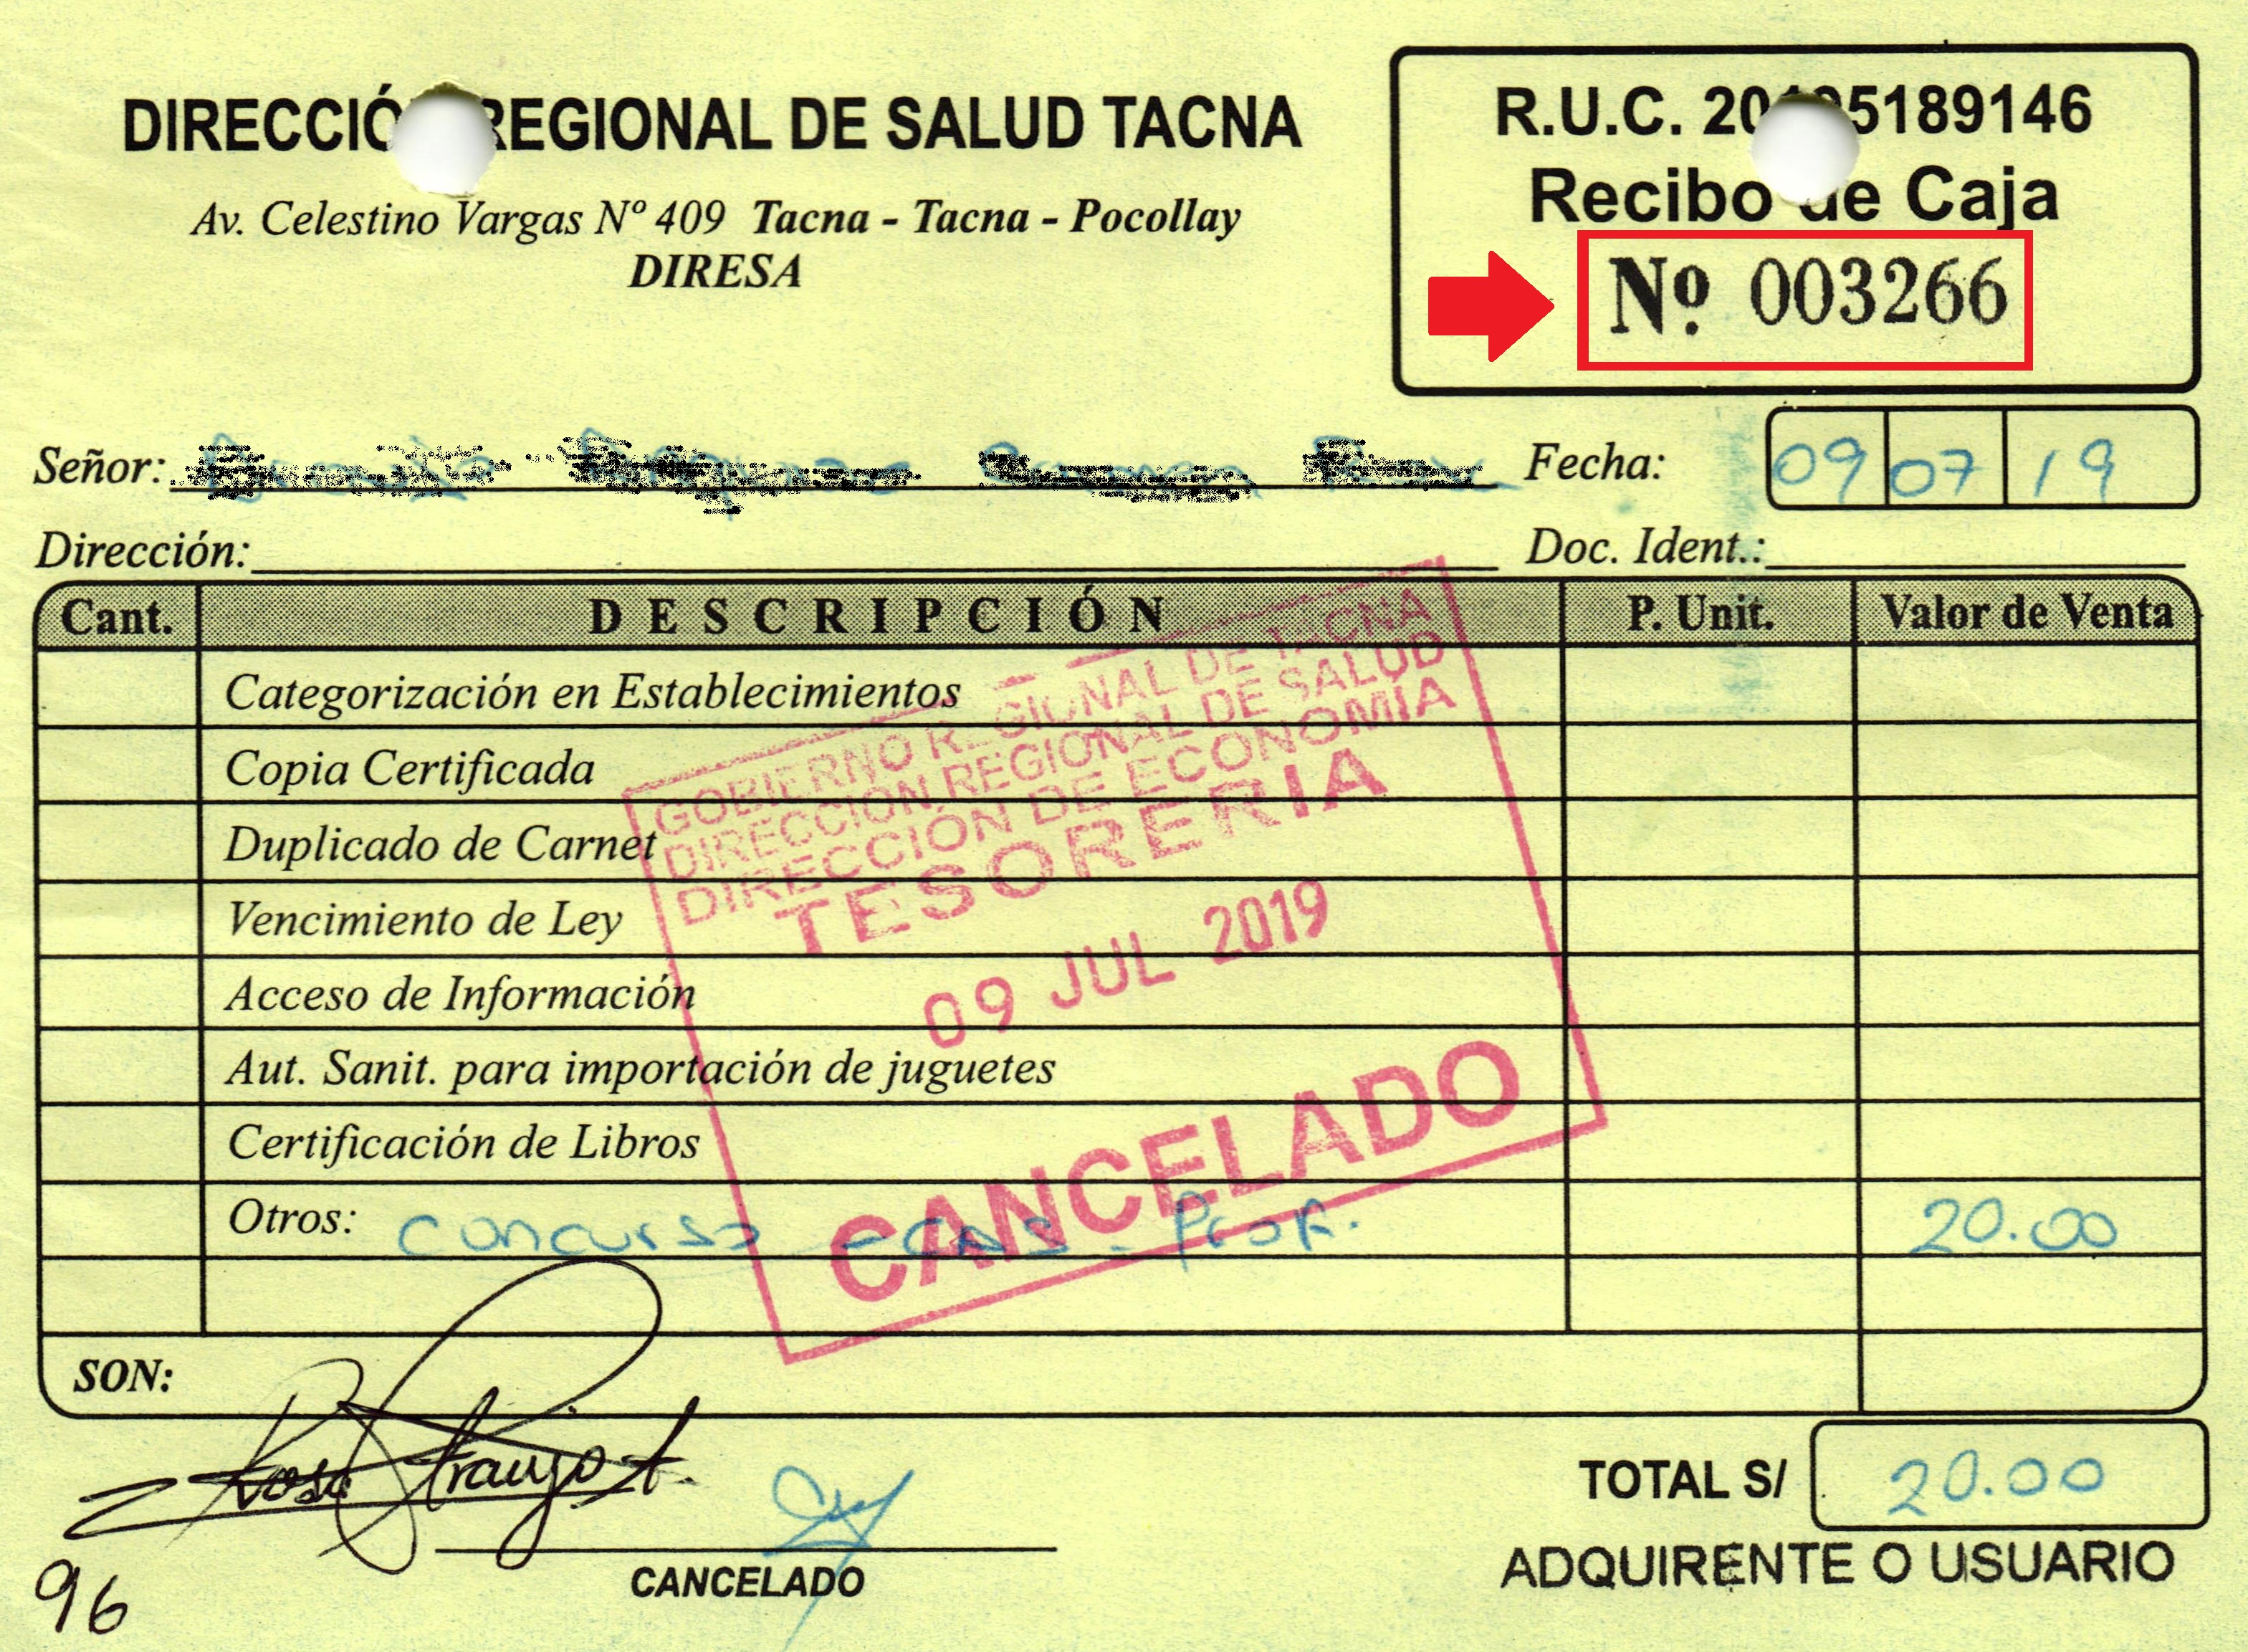 DIRECCIÓN REGIONAL DE SALUD TACNA
Av. Celestino Vargas Nº 409 Tacna - Tacna - Pocollay
DIRESA
R.U.C. 20 5189146
Recibo de Caja
Nº 003266
Señor:
Fecha: 09 07 19
Dirección:
Doc. Ident.:
Cant. DESCRIPCIÓN P. Unit. Valor de Venta
Categorización en Establecimientos
Copia Certificada
Duplicado de Carnet
Vencimiento de Ley
Acceso de Información
Aut. Sanit. para importación de juguetes
Certificación de Libros
Otros: Concurso - Prof. 20.00
GOBIERNO REGIONAL DE TACNA
DIRECCION REGIONAL DE SALUD
DIRECCIÓN DE ECONOMÍA
TESORERIA
09 JUL 2019
CANCELADO
SON:
Rosa Araujo A.
TOTAL S/ 20.00
CANCELADO
ADQUIRENTE O USUARIO
96